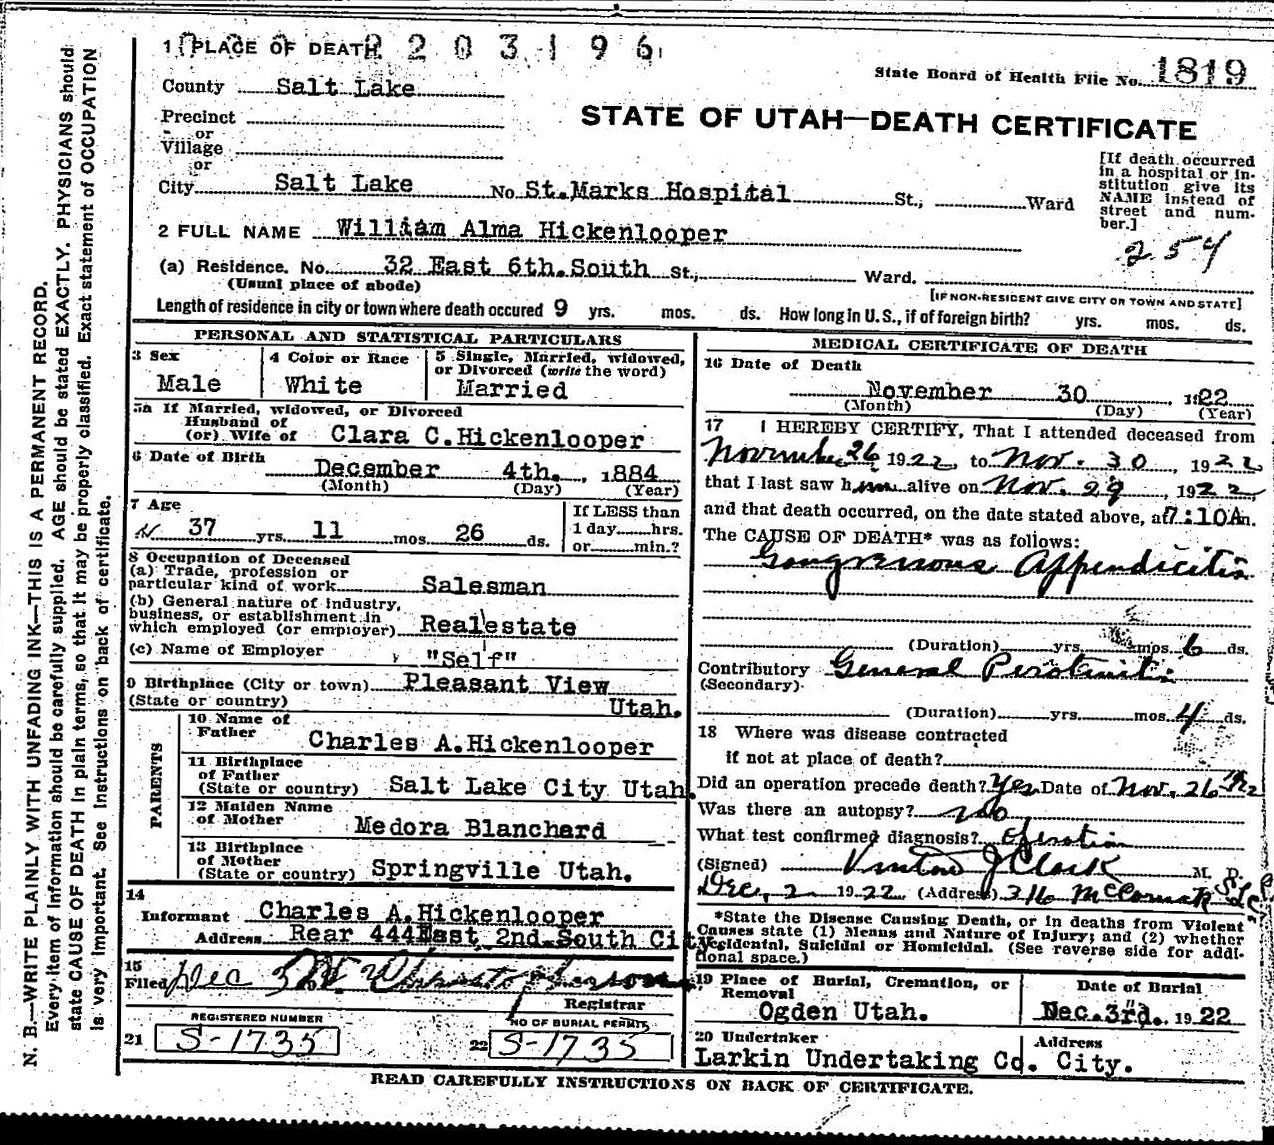 1 PLACE OF DEATH 2203196
State Board of Health File No. 1819
County Salt Lake
STATE OF UTAH—DEATH CERTIFICATE
Precinct
or
Village
or
City Salt Lake No. St.Marks Hospital St., Ward
[If death occurred
in a hospital or in-
stitution give its
NAME instead of
street and num-
ber.]
2 FULL NAME William Alma Hickenlooper
254
(a) Residence. No. 32 East 6th.South St., Ward.
(Usual place of abode)
[IF NON-RESIDENT GIVE CITY OR TOWN AND STATE]
Length of residence in city or town where death occured 9 yrs. mos. ds. How long in U. S., if of foreign birth? yrs. mos. ds.
PERSONAL AND STATISTICAL PARTICULARS
3 Sex
Male
4 Color or Race
White
5 Single, Married, widowed,
or Divorced (write the word)
Married
5a If Married, widowed, or Divorced
Husband of
(or) Wife of Clara C.Hickenlooper
6 Date of Birth
December 4th. , 1884
(Month) (Day) (Year)
7 Age
37 yrs. 11 mos. 26 ds.
If LESS than
1 day hrs.
or min.?
8 Occupation of Deceased
(a) Trade, profession or
particular kind of work Salesman
(b) General nature of industry,
business, or establishment in
which employed (or employer) Realestate
(c) Name of Employer "Self"
9 Birthplace (City or town) Pleasant View
(State or country) Utah.
PARENTS
10 Name of
Father Charles A.Hickenlooper
11 Birthplace
of Father
(State or country) Salt Lake City Utah.
12 Maiden Name
of Mother Medora Blanchard
13 Birthplace
of Mother
(State or country) Springville Utah.
14
Informant Charles A.Hickenlooper
Address Rear 444East 2nd.South City.
15
Filed Dec 3
Registrar
REGISTERED NUMBER
21 S-1735
NO OF BURIAL PERMIT
22 S-1735
MEDICAL CERTIFICATE OF DEATH
16 Date of Death
November 30 , 1922
(Month) (Day) (Year)
17 I HEREBY CERTIFY, That I attended deceased from
November 26, 1922, to Nov. 30, 1922
that I last saw him alive on Nov. 29, 1922,
and that death occurred, on the date stated above, at 7:10A m.
The CAUSE OF DEATH* was as follows:
Gangrenous Appendicitis
(Duration) yrs. mos. 6 ds.
Contributory General Peritonitis
(Secondary)
(Duration) yrs. mos. 4 ds.
18 Where was disease contracted
if not at place of death?
Did an operation precede death? Yes Date of Nov. 26 1922
Was there an autopsy? no
What test confirmed diagnosis? Operation
(Signed) Vinton J Clark M. D.
Dec, 2 1922 (Address) 316 McCornick S.L.C.
*State the Disease Causing Death, or in deaths from Violent
Causes state (1) Means and Nature of Injury; and (2) whether
Accidental, Suicidal or Homicidal. (See reverse side for addi-
tional space.)
19 Place of Burial, Cremation, or
Removal
Ogden Utah.
Date of Burial
Dec.3rd. 1922
20 Undertaker
Larkin Undertaking Co.
Address
City.
READ CAREFULLY INSTRUCTIONS ON BACK OF CERTIFICATE.
N. B.—WRITE PLAINLY WITH UNFADING INK—THIS IS A PERMANENT RECORD.
Every item of information should be carefully supplied. AGE should be stated EXACTLY. PHYSICIANS should
state CAUSE OF DEATH in plain terms, so that it may be properly classified. Exact statement of OCCUPATION
is very important. See Instructions on back of certificate.